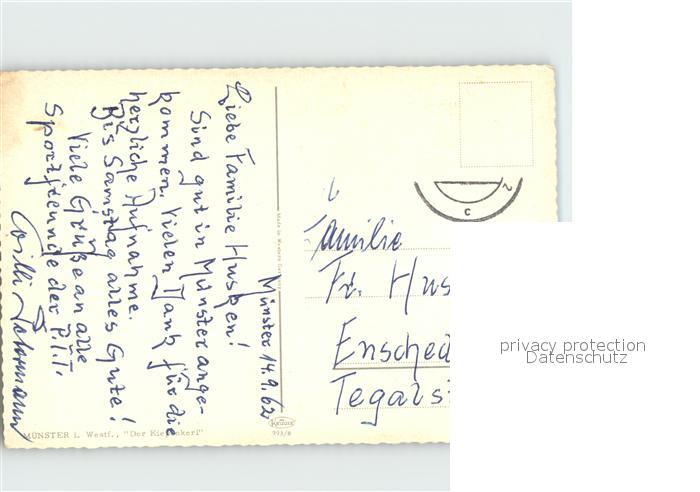 Münster 14.9.62
Liebe Familie Huspen!
Sind gut in Münster ange-
kommen. Vielen Dank für die
herzliche Aufnahme.
Bis Samstag alles Gute!
Viele Grüße an alle
Sportfreunde der P.T.T.
Willi
MÜNSTER i. Westf., "Der Kiepenkerl"
Made in Western Germany
KRÜGER
993/8
Familie
Fr. Hus
Ensched
Tegals
privacy protection
Datenschutz